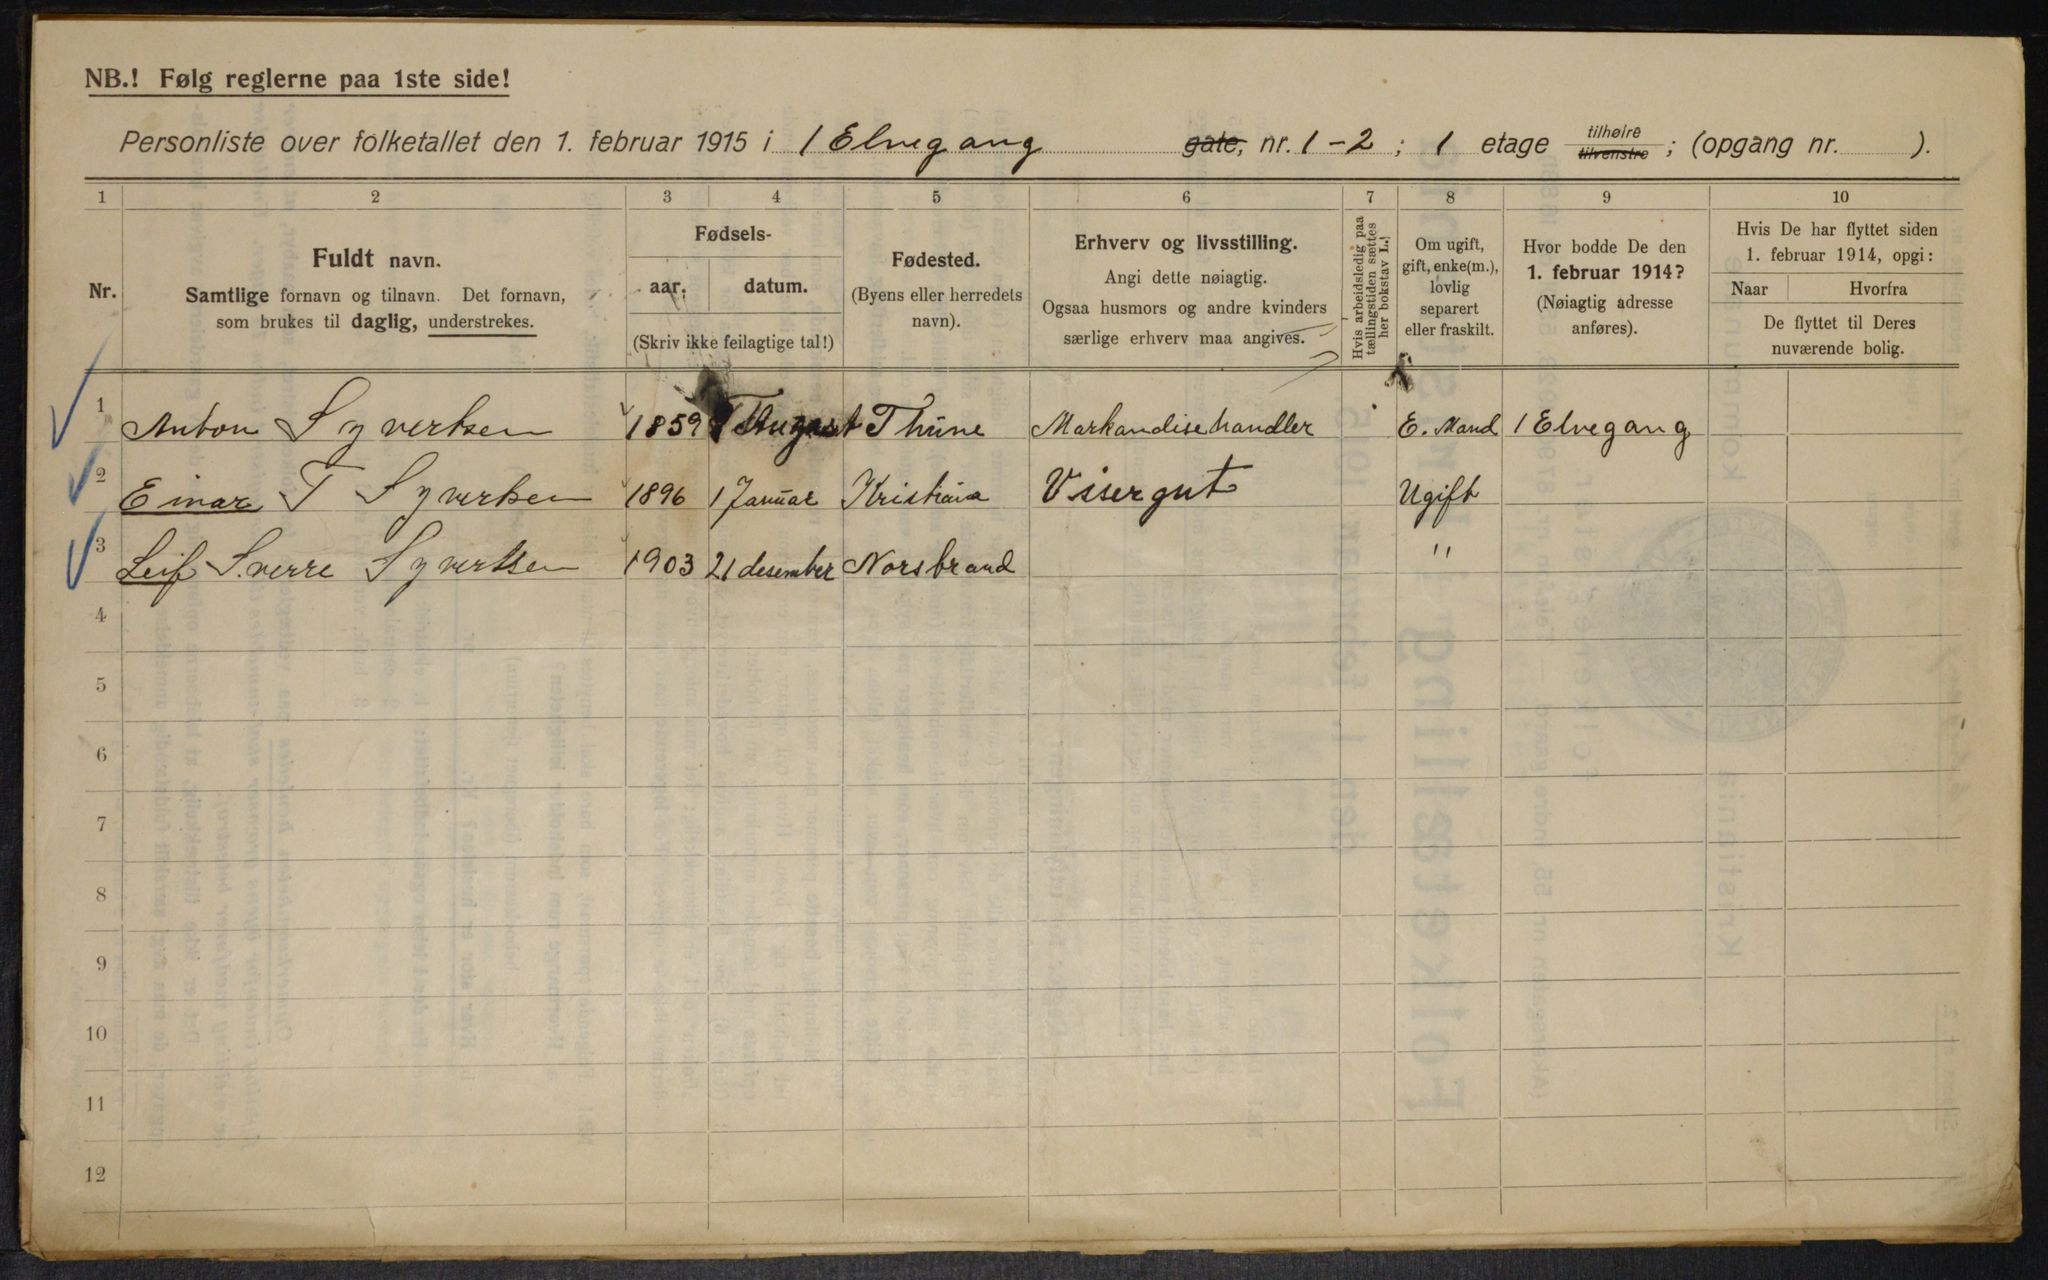 NB.! Følg reglerne paa 1ste side!
Personliste over folketallet den 1. februar 1915 i 1 Elvegang gate, nr. 1-2; 1 etage tilhøire tilvenstre; (opgang nr. ).
1 2 3 4 5 6 7 8 9 10
Nr.
Fuldt navn.
Samtlige fornavn og tilnavn. Det fornavn,
som brukes til daglig, understrekes.
Fødsels-
aar. datum.
(Skriv ikke feilagtige tal!)
Fødested.
(Byens eller herredets
navn).
Erhverv og livsstilling.
Angi dette nøiagtig.
Ogsaa husmors og andre kvinders
særlige erhverv maa angives.
Hvis arbeidsledig paa
tællingstiden sættes
her bokstav L.!
Om ugift,
gift, enke(m.),
lovlig
separert
eller fraskilt.
Hvor bodde De den
1. februar 1914?
(Nøiagtig adresse
anføres).
Hvis De har flyttet siden
1. februar 1914, opgi:
Naar Hvorfra
De flyttet til Deres
nuværende bolig.
1 Anton Syvertsen 1859 August Thune Markandisehandler E. Mand 1 Elvegang
2 Einar T Syvertsen 1896 1 Januar Kristiania Vissergut Ugift
3 Leif Sverre Syvertsen 1903 21 desember Norsbrand "
4
5
6
7
8
9
10
11
12